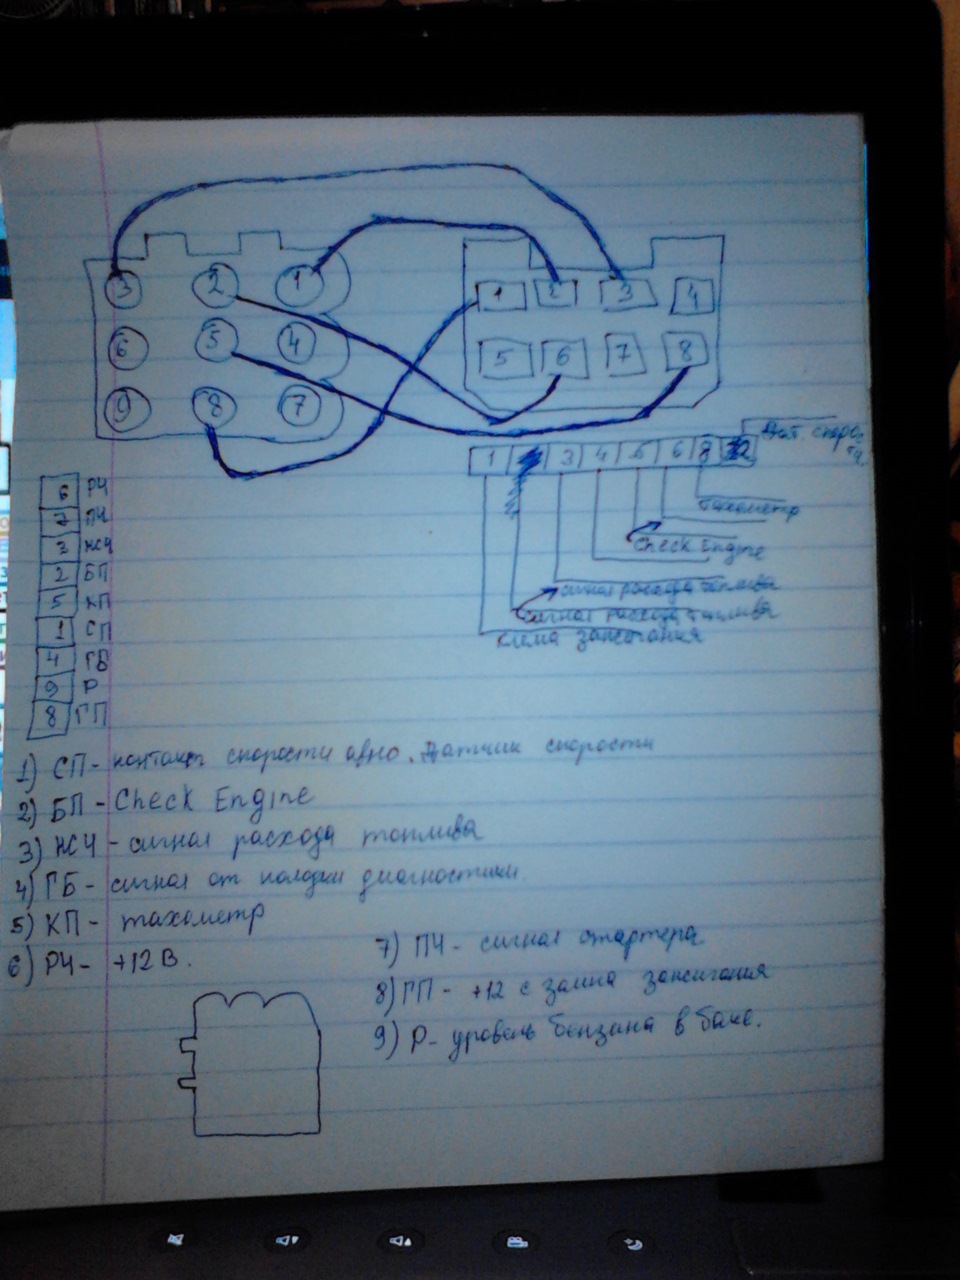 3 2 1
6 5 4
9 8 7
1 2 3 4
5 6 7 8
1 3 4 5 6 8
Дат. скорости
тахометр
Check Engine
сигнал расхода топлива
сигнал расхода топлива
клема зажигания
6 РЧ
7 ПЧ
3 НСЧ
2 БП
5 КП
1 СП
4 ГБ
9 Р
8 ГП
1) СП - контакт скорости авто. Датчик скорости
2) БП - Check Engine
3) НСЧ - сигнал расхода топлива
4) ГБ - сигнал от колодки диагностики.
5) КП - тахометр
6) РЧ - +12 В.
7) ПЧ - сигнал стартера
8) ГП - +12 с замка зажигания
9) Р - уровень бензина в баке.